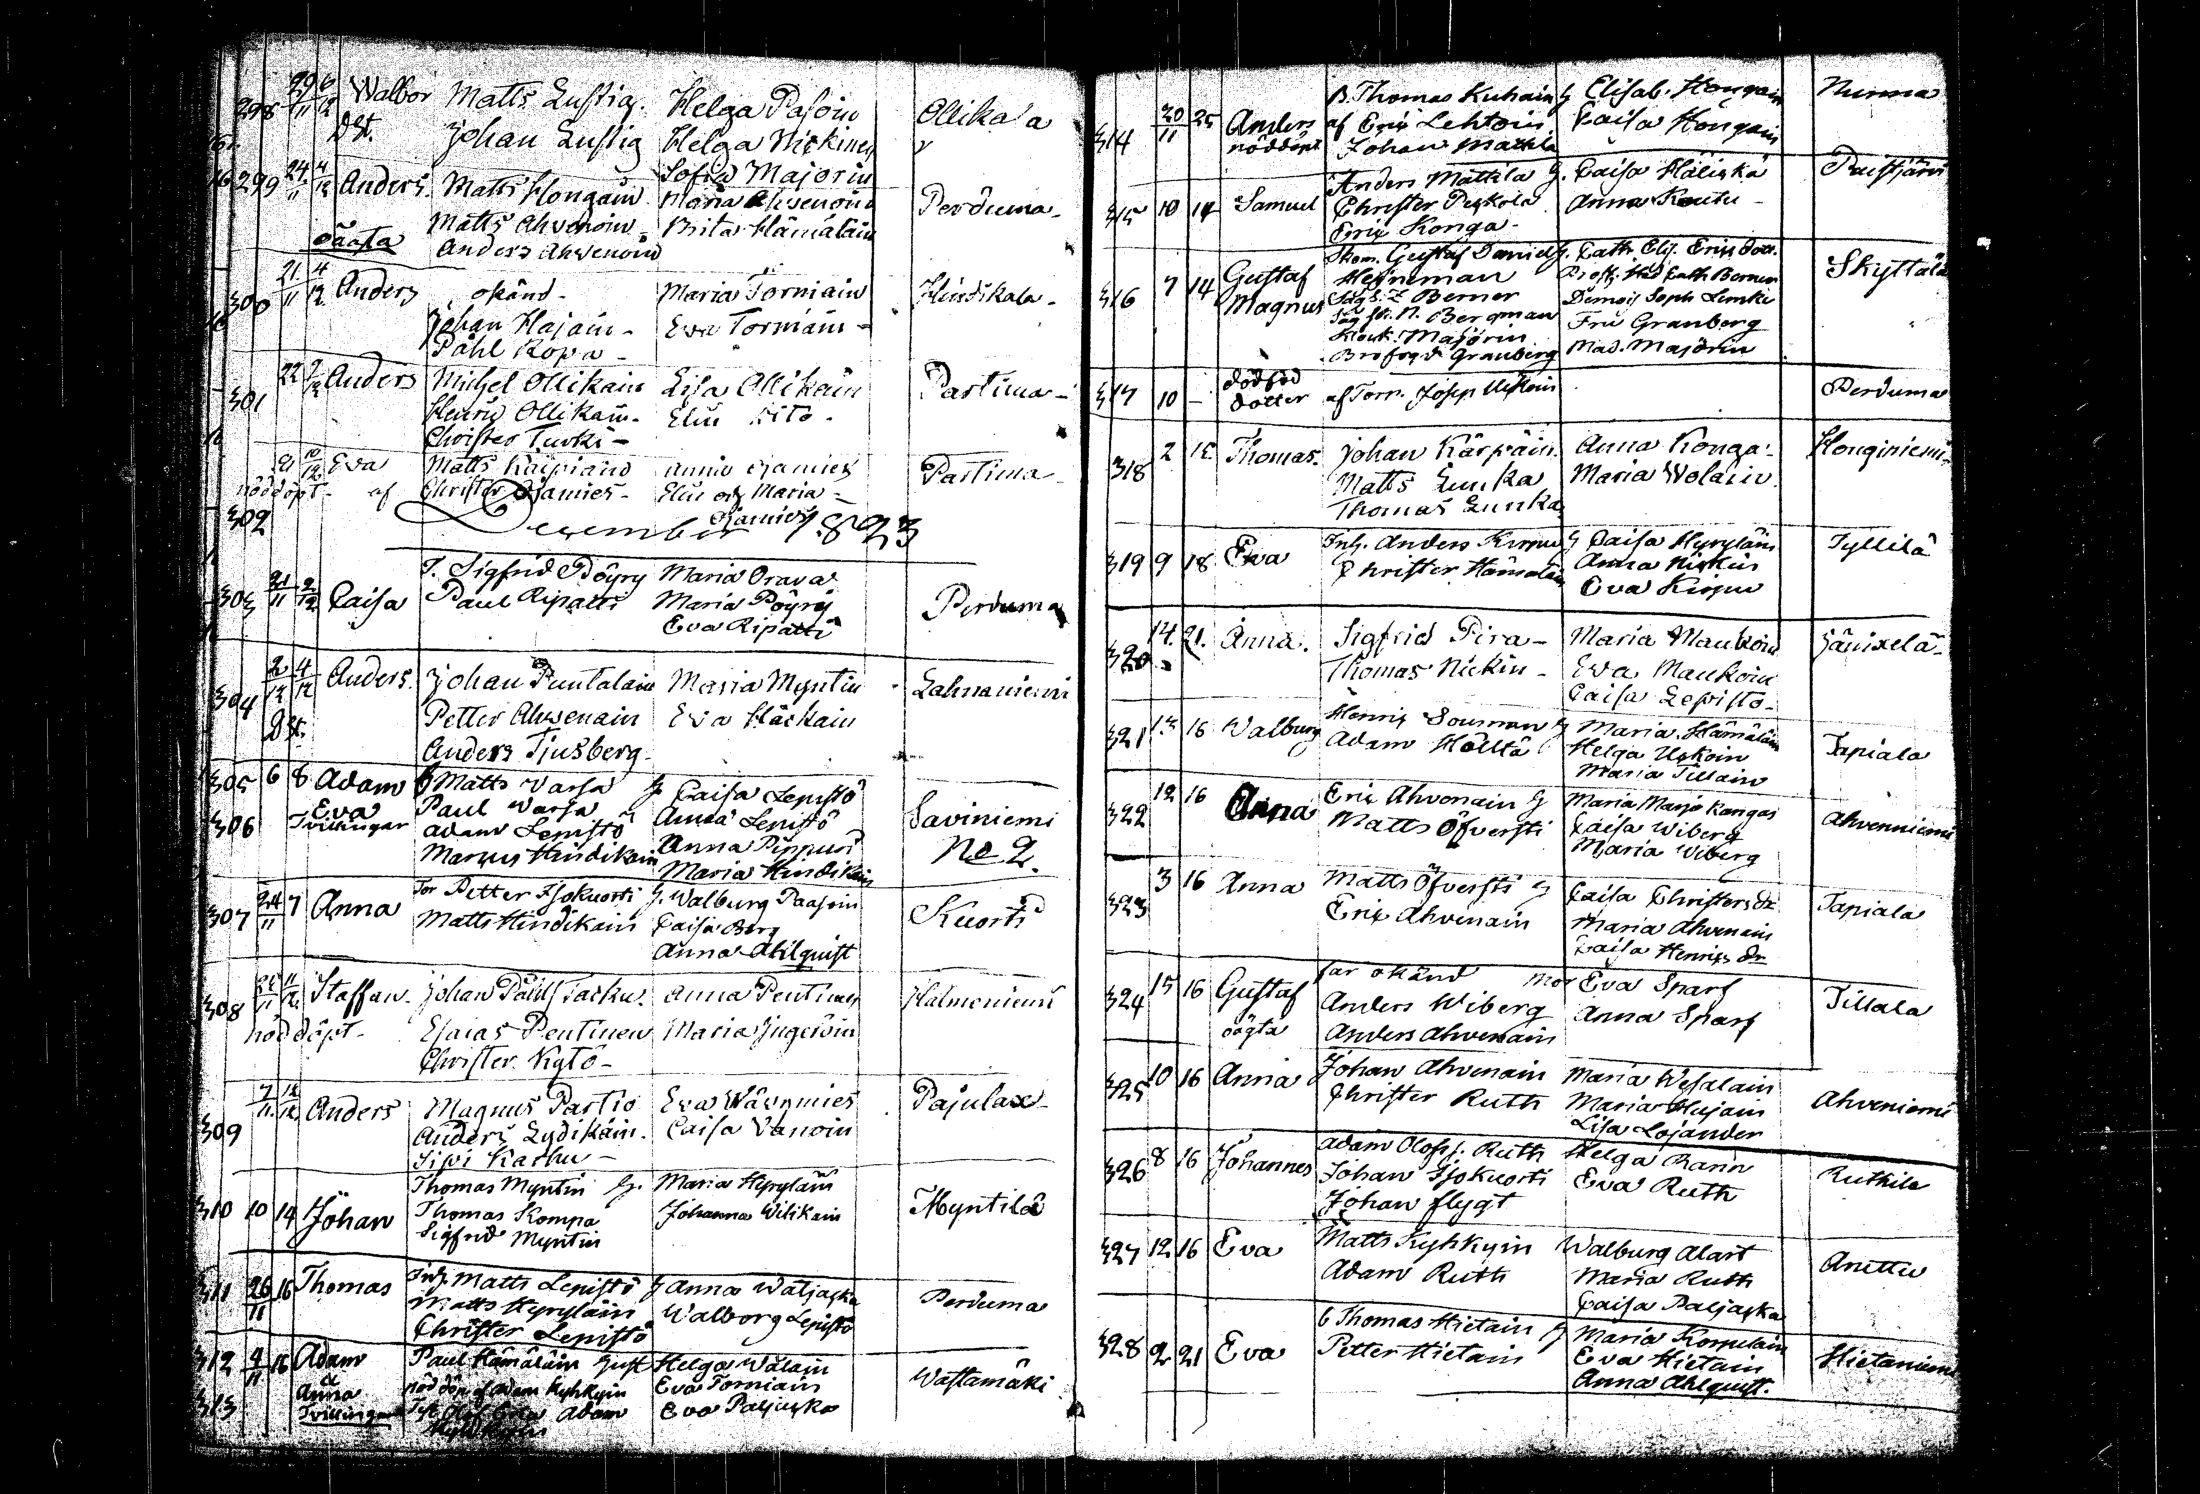 298 29/11 6/12 Walbor Matts Lustig. Helga Pasoin Ollikala
Dst. Johan Lustig Helga Nickinen
Sofia Majorin
299 24/11 4/12 Anders. Matts Hongain Maria Ahvenoin Perduma-
Matts Ahvenoin- Brita Hämäläin
oäagta Anders Ahvenoin
300 21/11 4/12 Anders okänd- Maria Torniain Hindikala-
Johan Hajain- Eva Torniain-
Påhl Kopa-
301 22 7/12 Anders Michel Ollikain Lisa Ollikain Partima-
Henric Ollikain- Elin Kito-
Christer Turki-
21 10/12 Eva Matts Karpiain Anna Partima
nöddöpt- af Christer Elin och Maria-
302
December 1823
303 21/11 9/12 Caisa T. Sigfrid Pöyry Maria Orava Perduma
Paul Ripatti Maria Pöyry
Eva Ripatti
304 2/12 4/12 Anders. Johan Puntalain Maria Myntin Lahnaniemi
Dst. Petter Ahvenain Eva Häckain
Anders Tjusberg-
305 6 8 Adam Matts Varsa g Caisa Lepistö Saviniemi
306 Eva Paul Varsa Anna Lepistö No 2.
Tvillingar Adam Lepistö Anna Pippuri
Marcus Hindikain Maria Hindikain
307 24/11 7 Anna Tor Petter Isokuorti g. Walburg Paasoin Kuorti
Matts Hindikain Caisa Berg
Anna Ahlquist
308 25/11 11/12 Staffan. Johan Påhls Tarku. Anna Pentinen Halmeniemi
nöddöpt- Esaias Pentinen Maria Ingeroin
Christer Kytö-
309 7/11 12/12 Anders Magnus Partio Eva Wävrmies Pajulax-
Anders Lydikain. Caisa Vanoin
Sipi Karhu-
310 10 14 Johan Thomas Myntin g. Maria Hyryläin Myntilä
Thomas Kompa Johanna Wilikain
Sigfrid Myntin
311 26/11 16 Thomas Inh. Matts Lepistö g Anna Waljacka Perduma
Matts Hyryläin Walborg Lepistö
Christer Lepistö
312 4/11 16 Adam Paul Hämäläin Helga Wälain Wästämäki
& Anna nöddöp af Adam Kyhkyin Eva Torniain
313 Tvillingar Adam Eva Paljacka
314 30/11 25 Anders B. Thomas Kuhain g Elisab. Hongain Nurmaa
nöddöpt af Eric Lehtoin Caisa Hongain
Johan Mattila
315 10 14 Samuel Anders Mattila g. Caisa Häliskä Paistjärvi
Christer Peskola Anna Koutu-
Eric Konga-
316 7 14 Gustaf Magnus Gustaf Daniels g. Cath. Elis. Ericsdotr. Skyttälä
Heineman Cath Berner
Berner Demois Soph Lemke
Bergman Fru Granberg
Klock. Majorin Mad. Majorin
Brofogd. Granberg
317 10 - dödföd dotter af Torp. Josep Uskoin Perduma
318 2 12 Thomas. Johan Kärpäin. Anna Konga- Honginiemi-
Matts Lunka Maria Wolain
Thomas Lunka
319 9 18 Eva Inh. Anders Kirpu g Caisa Hyryläin Tyllilä
Christer Hämäläin Anna Nickin
Eva Kirpu
320 14. 21. Anna. Sigfrid Pira- Maria Maukoin Jänixelä-
Thomas Nickin- Eva Maukoin
Caisa Lepisto-
321 13 16 Walburg Henric Souman g Maria Hämäläin Tapiala
Adam Hölltä Helga Uskoin
Maria Tillain
322 12 16 Anna Eric Ahvonain g Maria Marjokangas Ahvenniemi
Matts Öfversti Caisa Wiberg
Maria Wiberg
323 3 16 Anna Matts Öfversti g Caisa Christersdr Tapiala
Eric Ahvenain Maria Ahvenain
Caisa Henricsdr
324 15 16 Gustaf far okänd mor Eva Sparf Tillala
oägta Anders Wiberg Anna Sparf
Anders Ahvenain
325 10 16 Anna Johan Ahvenain Maria Wesalain Ahveniemi
Christer Ruth Maria Hujain
Lisa Lojander
326 8 16 Johannes Adam Olofss. Ruth Helga Rann Ruthila
Johan Isokuorti Eva Ruth
Johan Flygt
327 12 16 Eva Matts Kyhkyin Walburg Alart Anettu
Adam Ruth Maria Ruth
Caisa Paljacka
328 2 21 Eva b Thomas Hietain g Maria Korpulain Hietaniemi
Petter Hietain Eva Hietain
Anna Ahlquist.